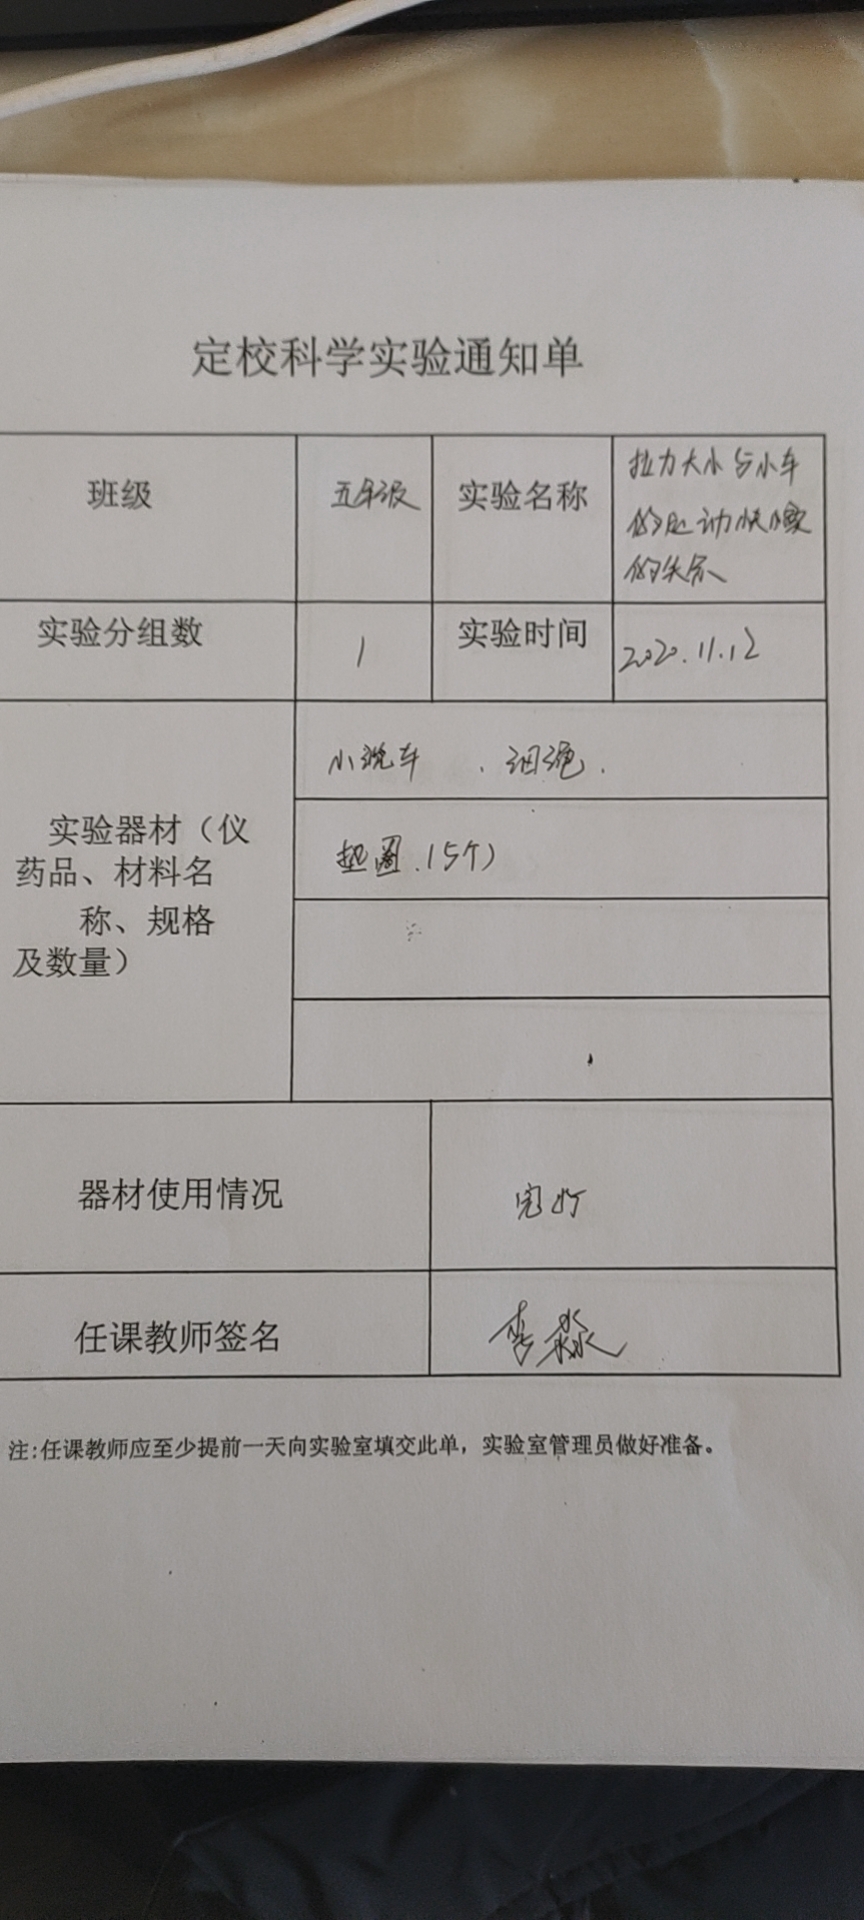 定校科学实验通知单
班级
五年级
实验名称
拉力大小与小车
的运动快慢
的关系
实验分组数
1
实验时间
2020.11.12
实验器材（仪
药品、材料名
称、规格
及数量）
小 车 、 绳 .
垫圈.(5个)
器材使用情况
完好
任课教师签名
李淼
注:任课教师应至少提前一天向实验室填交此单，实验室管理员做好准备。